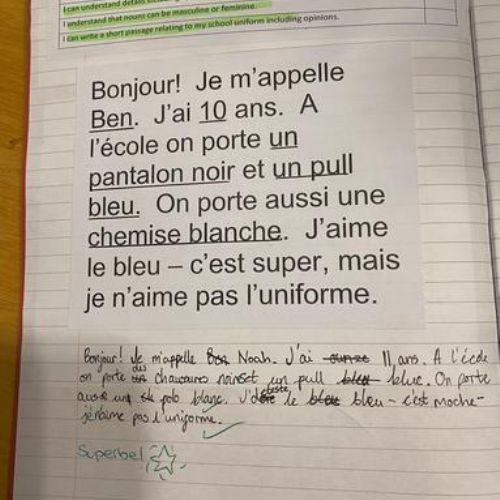 I can understand details
I understand that nouns can be masculine or feminine.
I can write a short passage relating to my school uniform including opinions.
Bonjour! Je m'appelle
Ben. J'ai 10 ans. A
l'école on porte un
pantalon noir et un pull
bleu. On porte aussi une
chemise blanche. J'aime
le bleu – c'est super, mais
je n'aime pas l'uniforme.
Bonjour! Je m'appelle Ben Noah. J'ai 11 ans. A l'école
on porte des chaussures noirs et un pull bleu blue. On porte
aussi un polo blanc. J'déteste le bleu bleu - c'est moche -
je n'aime pas l'uniforme.
Superbe!